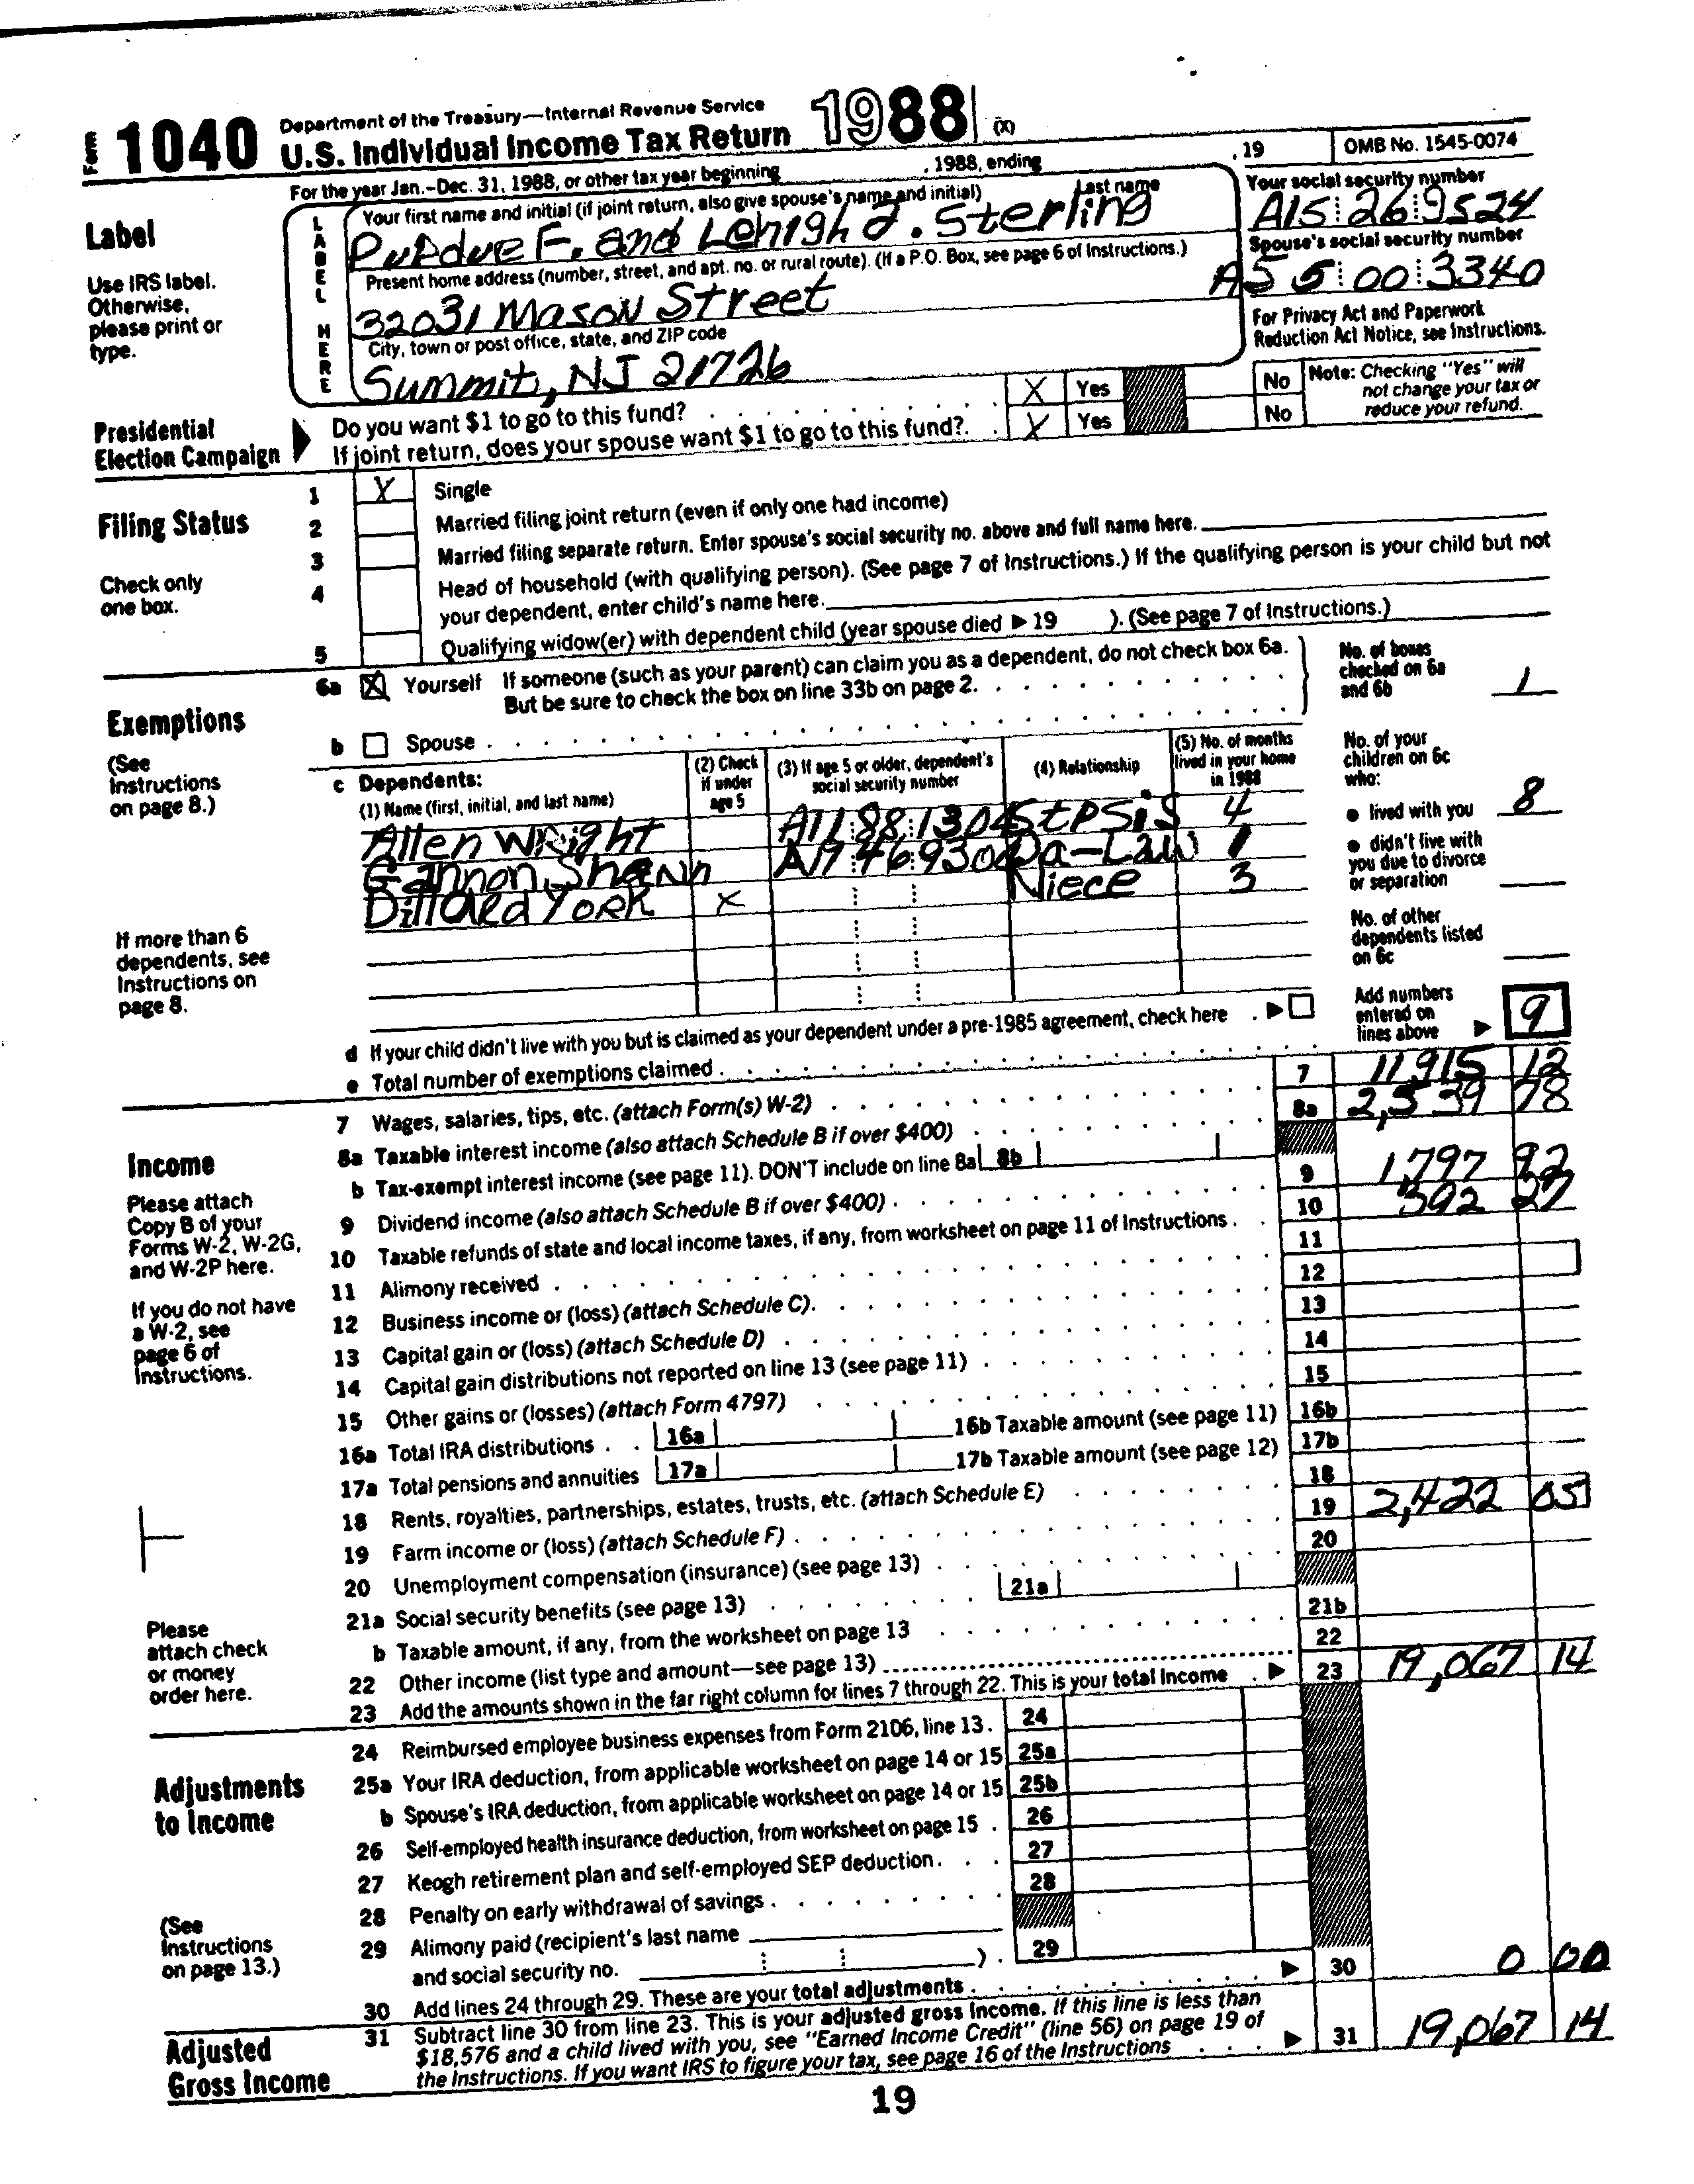 Form 1040 Department of the Treasury—Internal Revenue Service
U.S. Individual Income Tax Return 1988 (X)
For the year Jan.-Dec. 31, 1988, or other tax year beginning , 1988, ending , 19 OMB No. 1545-0074
Label
Use IRS label.
Otherwise,
please print or
type.
LABEL HERE
Your first name and initial (if joint return, also give spouse's name and initial) Last name
Purdue F. and Lehigh J. Sterling
Your social security number
A15 26 9524
Present home address (number, street, and apt. no. or rural route). (If a P.O. Box, see page 6 of Instructions.)
32031 Mason Street
Spouse's social security number
A55 00 3340
City, town or post office, state, and ZIP code
Summit, NJ 21726
For Privacy Act and Paperwork
Reduction Act Notice, see Instructions.
Presidential
Election Campaign
Do you want $1 to go to this fund? X Yes No
If joint return, does your spouse want $1 to go to this fund? X Yes No
Note: Checking "Yes" will
not change your tax or
reduce your refund.
Filing Status
Check only
one box.
1 X Single
2 Married filing joint return (even if only one had income)
3 Married filing separate return. Enter spouse's social security no. above and full name here.
4 Head of household (with qualifying person). (See page 7 of Instructions.) If the qualifying person is your child but not
your dependent, enter child's name here.
5 Qualifying widow(er) with dependent child (year spouse died ▶ 19 ). (See page 7 of Instructions.)
Exemptions
(See
Instructions
on page 8.)
6a X Yourself If someone (such as your parent) can claim you as a dependent, do not check box 6a.
But be sure to check the box on line 33b on page 2.
b Spouse
No. of boxes
checked on 6a
and 6b 1
c Dependents:
(1) Name (first, initial, and last name)
(2) Check
if under
age 5
(3) If age 5 or older, dependent's
social security number
(4) Relationship
(5) No. of months
lived in your home
in 1988
Allen Wright A11 88 1304 StpSis 4
Gannon Shawn A17 46 9306 Da-Law 1
Dillard York X Niece 3
No. of your
children on 6c
who:
● lived with you 8
● didn't live with
you due to divorce
or separation
No. of other
dependents listed
on 6c
If more than 6
dependents, see
Instructions on
page 8.
d If your child didn't live with you but is claimed as your dependent under a pre-1985 agreement, check here ▶
e Total number of exemptions claimed
Add numbers
entered on
lines above ▶ 9
Income
Please attach
Copy B of your
Forms W-2, W-2G,
and W-2P here.
If you do not have
a W-2, see
page 6 of
Instructions.
Please
attach check
or money
order here.
7 Wages, salaries, tips, etc. (attach Form(s) W-2) 7 11,915 12
8a Taxable interest income (also attach Schedule B if over $400) 8a 2,539 78
b Tax-exempt interest income (see page 11). DON'T include on line 8a 8b
9 Dividend income (also attach Schedule B if over $400) 9 1,797 92
10 Taxable refunds of state and local income taxes, if any, from worksheet on page 11 of Instructions 10 392 27
11 Alimony received 11
12 Business income or (loss) (attach Schedule C) 12
13 Capital gain or (loss) (attach Schedule D) 13
14 Capital gain distributions not reported on line 13 (see page 11) 14
15 Other gains or (losses) (attach Form 4797) 15
16a Total IRA distributions 16a 16b Taxable amount (see page 11) 16b
17a Total pensions and annuities 17a 17b Taxable amount (see page 12) 17b
18 Rents, royalties, partnerships, estates, trusts, etc. (attach Schedule E) 18
19 Farm income or (loss) (attach Schedule F) 19 2,422 05
20 Unemployment compensation (insurance) (see page 13) 20
21a Social security benefits (see page 13) 21a
b Taxable amount, if any, from the worksheet on page 13 21b
22 Other income (list type and amount—see page 13) 22
23 Add the amounts shown in the far right column for lines 7 through 22. This is your total income ▶ 23 19,067 14
Adjustments
to Income
(See
Instructions
on page 13.)
24 Reimbursed employee business expenses from Form 2106, line 13. 24
25a Your IRA deduction, from applicable worksheet on page 14 or 15 25a
b Spouse's IRA deduction, from applicable worksheet on page 14 or 15 25b
26 Self-employed health insurance deduction, from worksheet on page 15 26
27 Keogh retirement plan and self-employed SEP deduction 27
28 Penalty on early withdrawal of savings 28
29 Alimony paid (recipient's last name
and social security no. ) 29
30 Add lines 24 through 29. These are your total adjustments ▶ 30 0 00
Adjusted
Gross Income
31 Subtract line 30 from line 23. This is your adjusted gross income. If this line is less than
$18,576 and a child lived with you, see "Earned Income Credit" (line 56) on page 19 of
the Instructions. If you want IRS to figure your tax, see page 16 of the Instructions ▶ 31 19,067 14
19